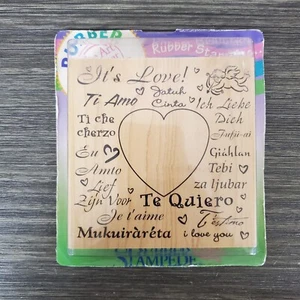 RUBBER
Rubber Stamp
It's Love!
Jatuh
Cinta
Ti Amo
Ich Liebe
Dich
Ti che
cherzo
Eu
Amto
Giàhlun
Tebi
za ljubar
Lief
Zijn Voor
Te Quiero
Je t'aime
Mukuiràréta
i love you
STAMPEDE